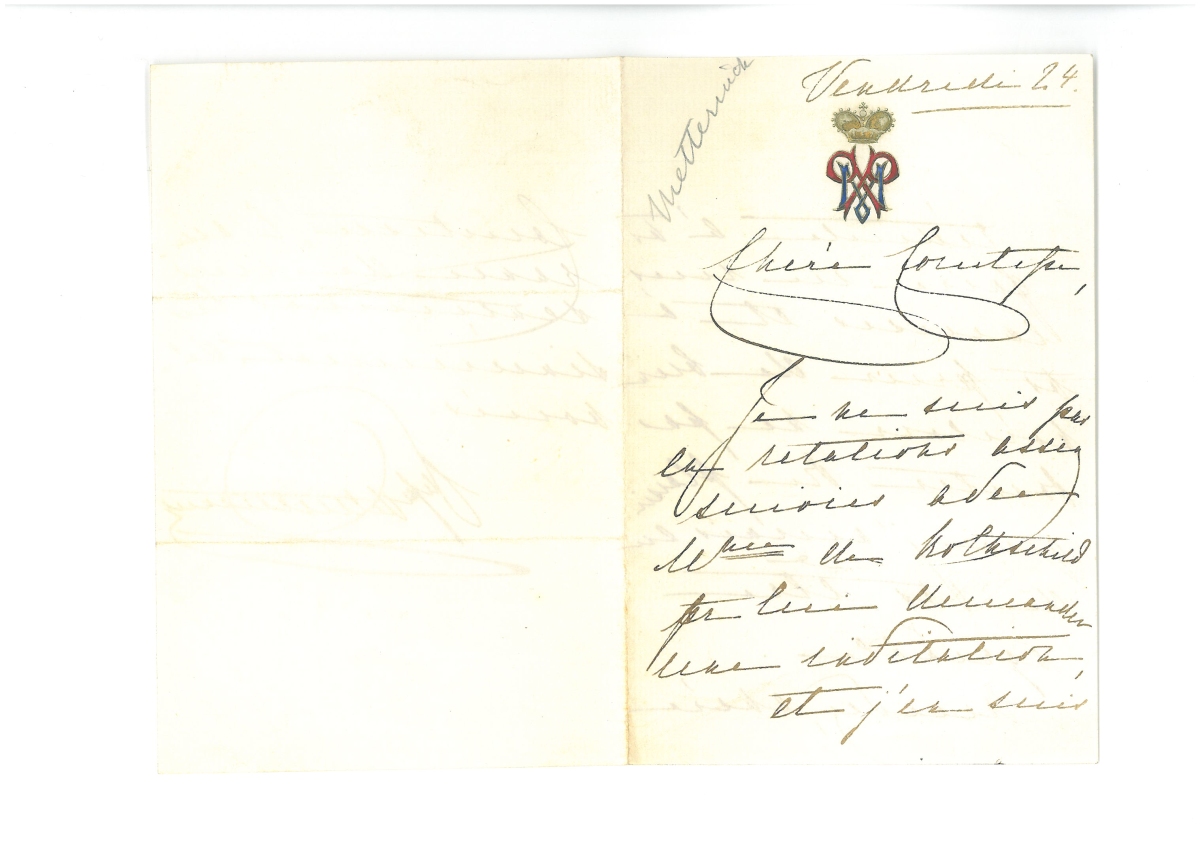 Metternich
Vendredi 24.
Chère Comtesse,
Je ne suis pas
en relations assez
suivies avec
Mme de Rothschild
pr lui demander
une invitation,
et j'en suis